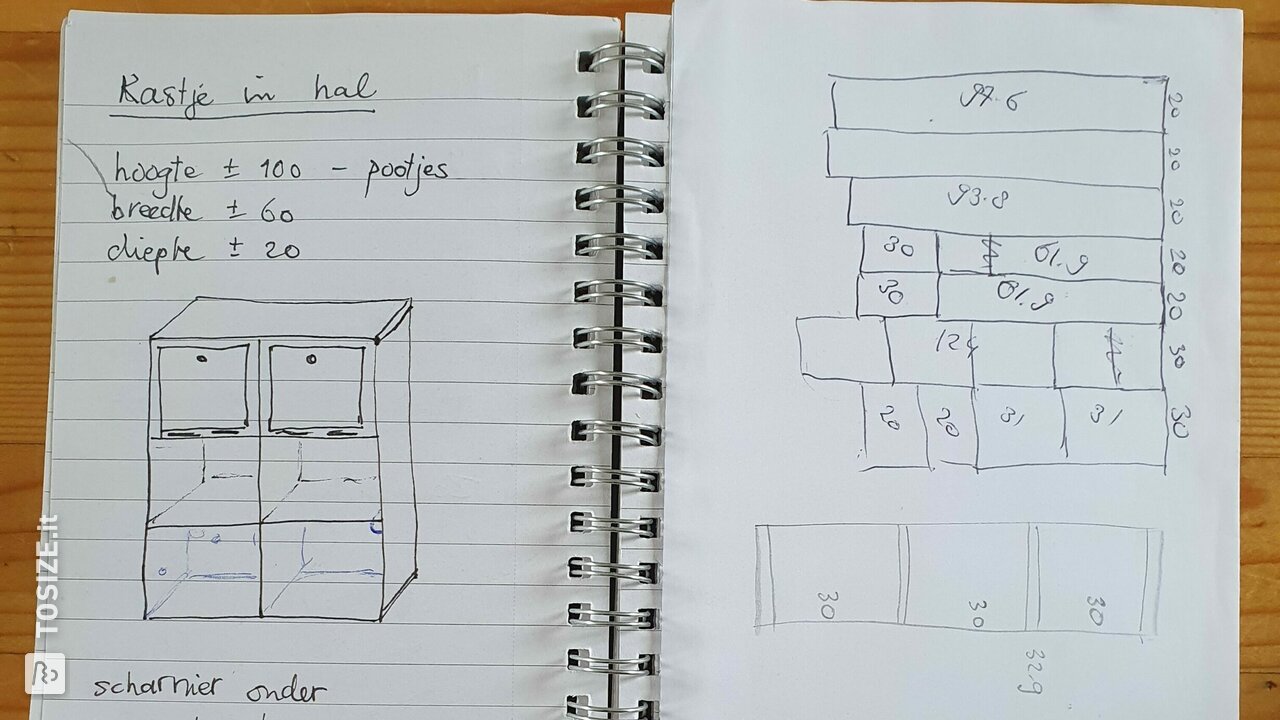 Kastje in hal
hoogte ± 100 - pootjes
breedte ± 60
diepte ± 20
scharnier onder
97.6
20
20
93.8
20
30
61.9
20
30
61.9
20
30
20
20
31
31
30
30
30
30
32.9
TOSIZE.it